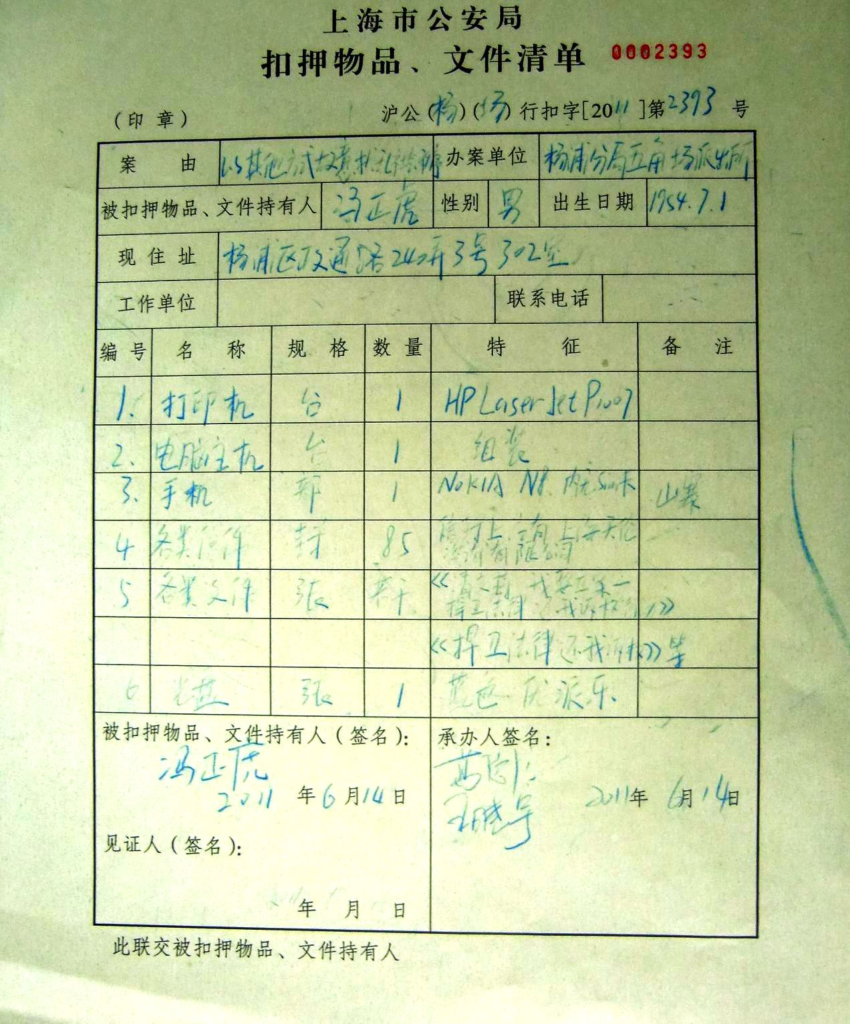 上海市公安局
扣押物品、文件清单 0002393
(印章) 沪公(杨)(场)行扣字[2011]第2393号
案由 以其他方式故意扰乱 办案单位 杨浦分局五角场派出所
被扣押物品、文件持有人 冯正虎 性别 男 出生日期 1954.7.1
现住址 杨浦区政通路240弄3号302室
工作单位 联系电话
编号 名称 规格 数量 特征 备注
1. 打印机 台 1 HP LaserJet P1007
2. 电脑主机 台 1 组装
3. 手机 部 1 NOKIA N8
4 各类信件 封 85
5 各类文件 张 若干
《捍卫法律还我诉权》等
6 光盘 张 1 蓝色
被扣押物品、文件持有人(签名): 承办人签名:
冯正虎
2011年6月14日 2011年6月14日
见证人(签名):
年月日
此联交被扣押物品、文件持有人